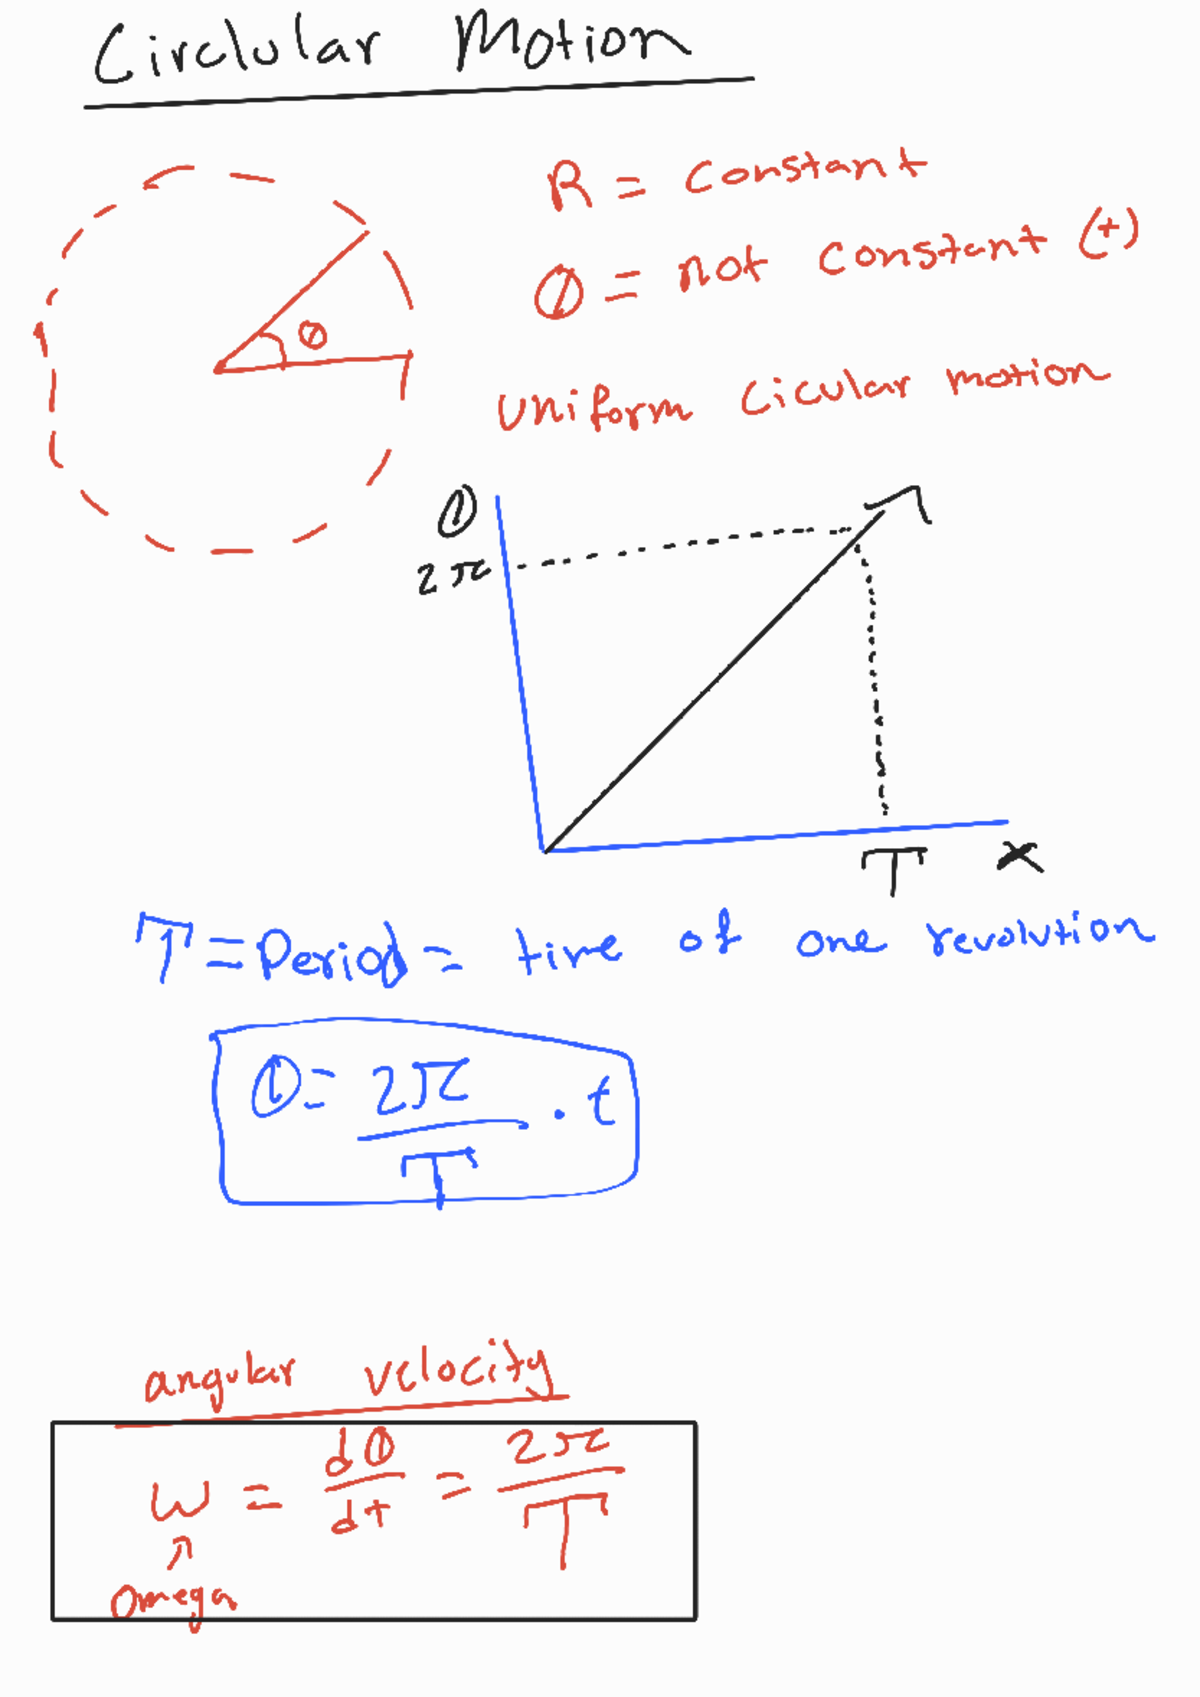 Circlular Motion
R = constant
θ = not constant (t)
θ
uniform cicular motion
θ
2π
T x
T = Period = time of one revolution
θ = 2π/T · t
angular velocity
w = dθ/dt = 2π/T
omega